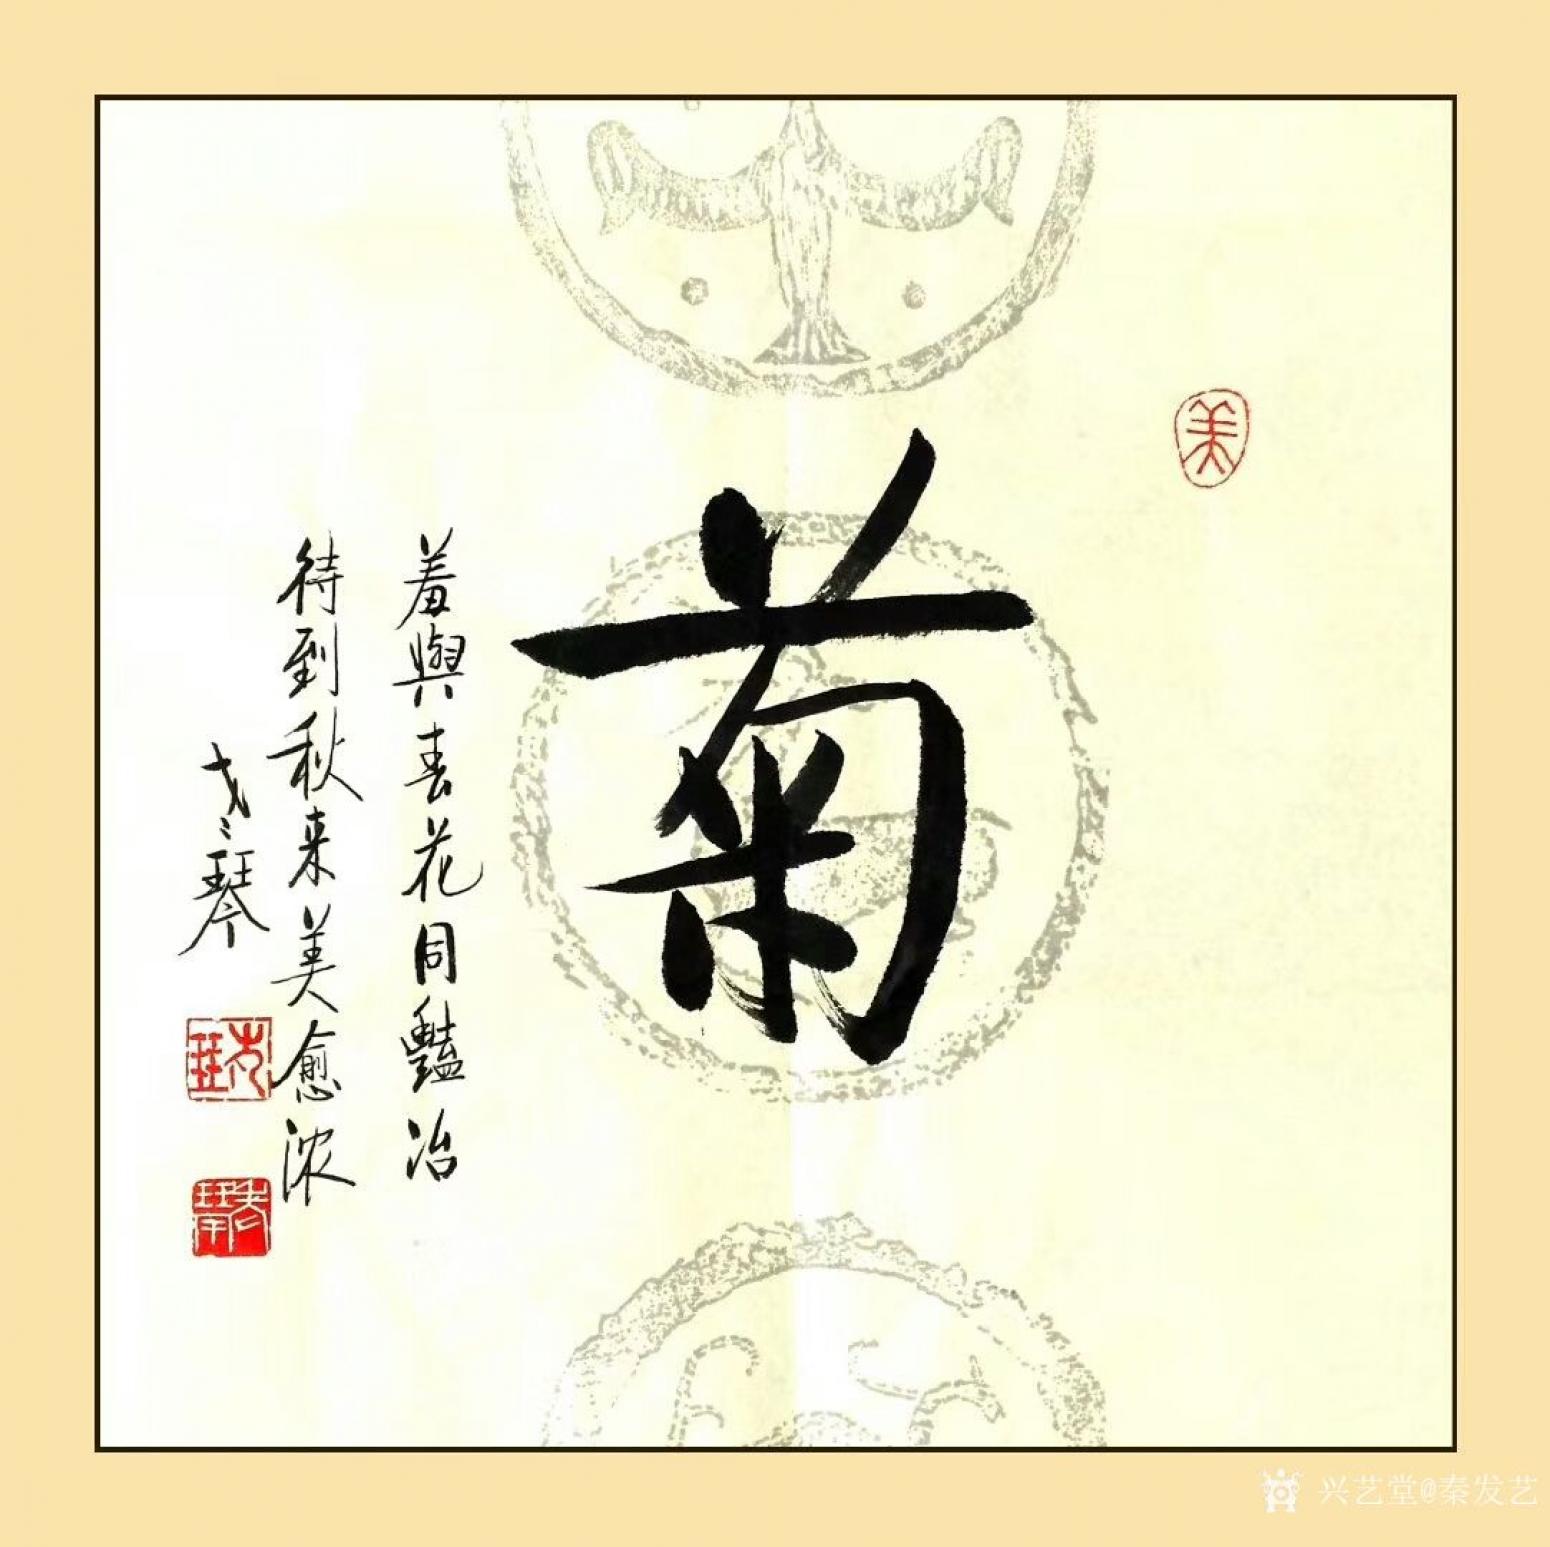 菊
羞與春花同豔冶
待到秋来美愈浓
琴
美
兴艺堂@秦发艺